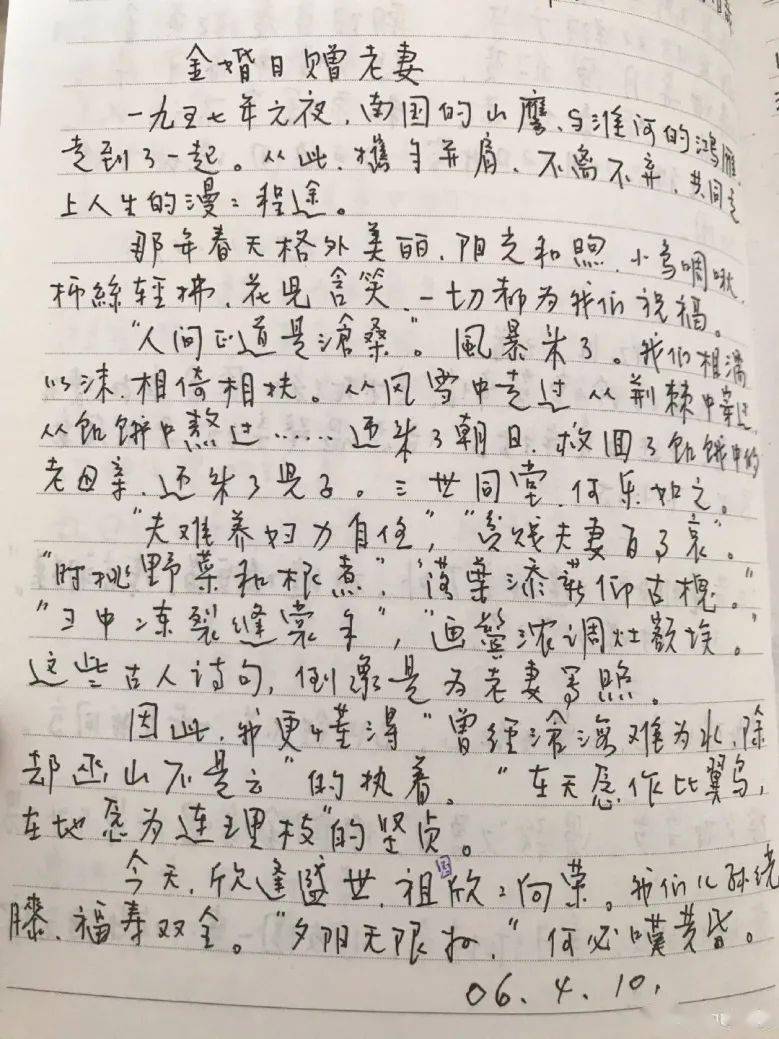 金婚日赠老妻
一九五七年元夜，南国的山鹰，与淮河的鸿雁
走到了一起。从此，携手并肩，不离不弃，共同走
上人生的漫〻程途。
那年春天格外美丽，阳光和煦，小鸟啁啾，
柳絲輕拂，花児含笑，一切都为我们祝福。
“人间正道是滄桑”。風暴来了。我们相濡
以沫，相倚相扶。从风雪中走过，从荆棘中穿过，
从飢餓中熬过……迎来了朝日，救回了飢餓中的
老母亲，迎来了児子。三世同堂，何乐如之。
“夫难养妇力自任”，“贫贱夫妻百事哀”。
“时挑野菜和根煮”，“落葉添薪仰古槐。”
“日中冻裂缝裳手”，“画鬓浓调灶额埃。”
这些古人诗句，倒像是为老妻写照。
因此，我更懂得“曾经滄海难为水，除
却巫山不是云”的执着。“在天愿作比翼鸟，
在地愿为连理枝”的坚贞。
今天，欣逢盛世，祖国欣〻向荣。我们儿孙绕
膝，福寿双全。“夕阳无限好，”何必嘆黄昏。
06.4.10.